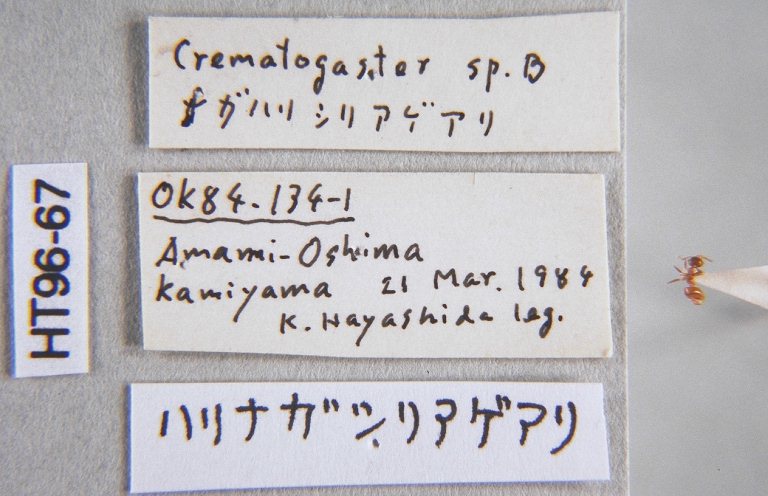 Crematogaster sp. B
ナガハリシリアゲアリ
HT96-67
OK84.134-1
Amami-Oshima
Kamiyama 21 Mar. 1984
K. Hayashida leg.
ハリナガシリアゲアリ